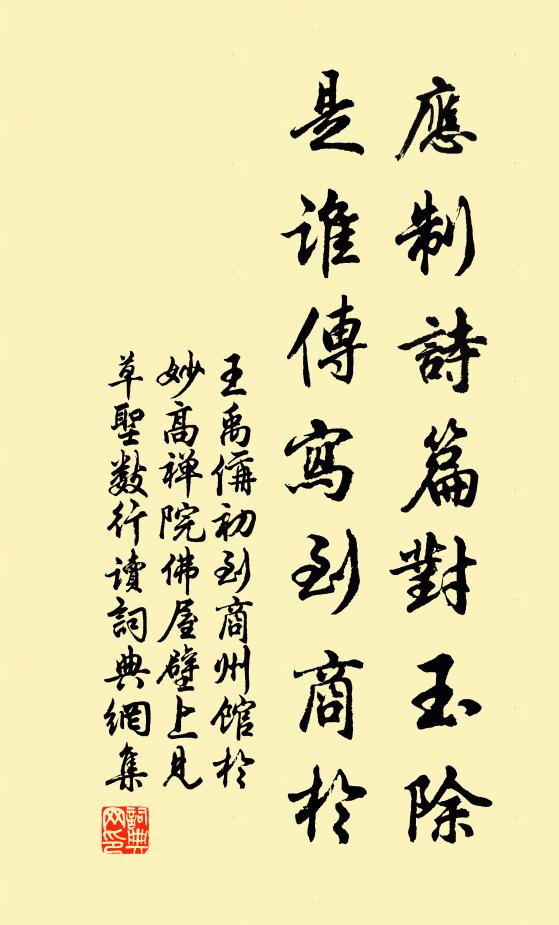 應制詩篇對玉除
是誰傳寫到商於
王禹偁初到商州館於
妙高禅院佛屋壁上見
草聖数行讀詞典網集
詞典網印